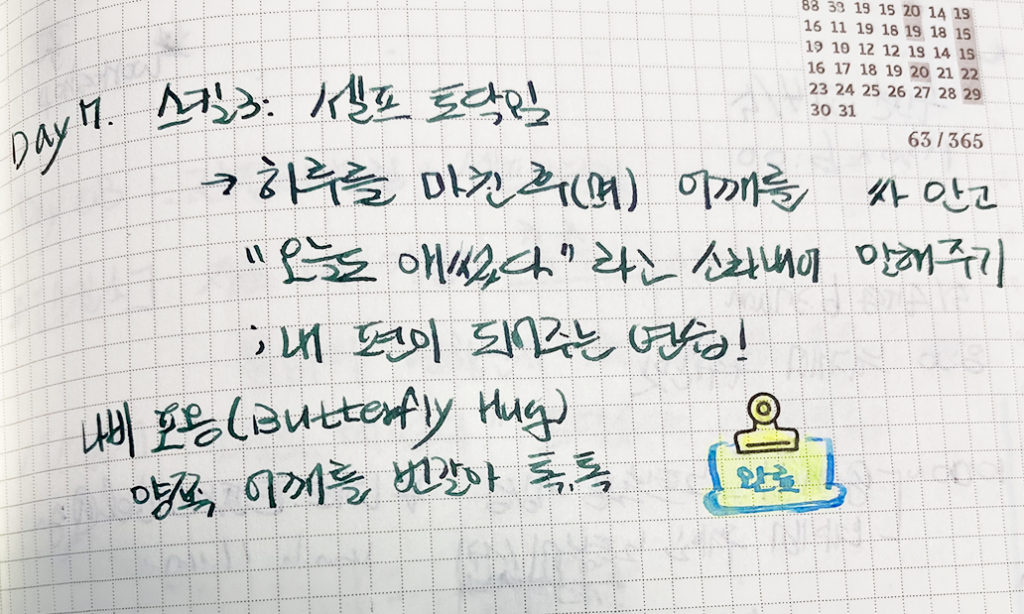 88 38 19 15 20 14 19
16 11 19 18 19 18 15
19 10 12 12 13 14 15
16 17 18 19 20 21 22
23 24 25 26 27 28 29
30 31
63 / 365
Day 7. 스킬3: 셀프 토닥임
→ 하루를 마친 후(며) 어깨를 싸 안고
"오늘도 애썼다" 라는 소리내어 말해주기
; 내 편이 되어주는 연습!
나비 포옹(Butterfly Hug)
양쪽 어깨를 번갈아 톡, 톡
완료